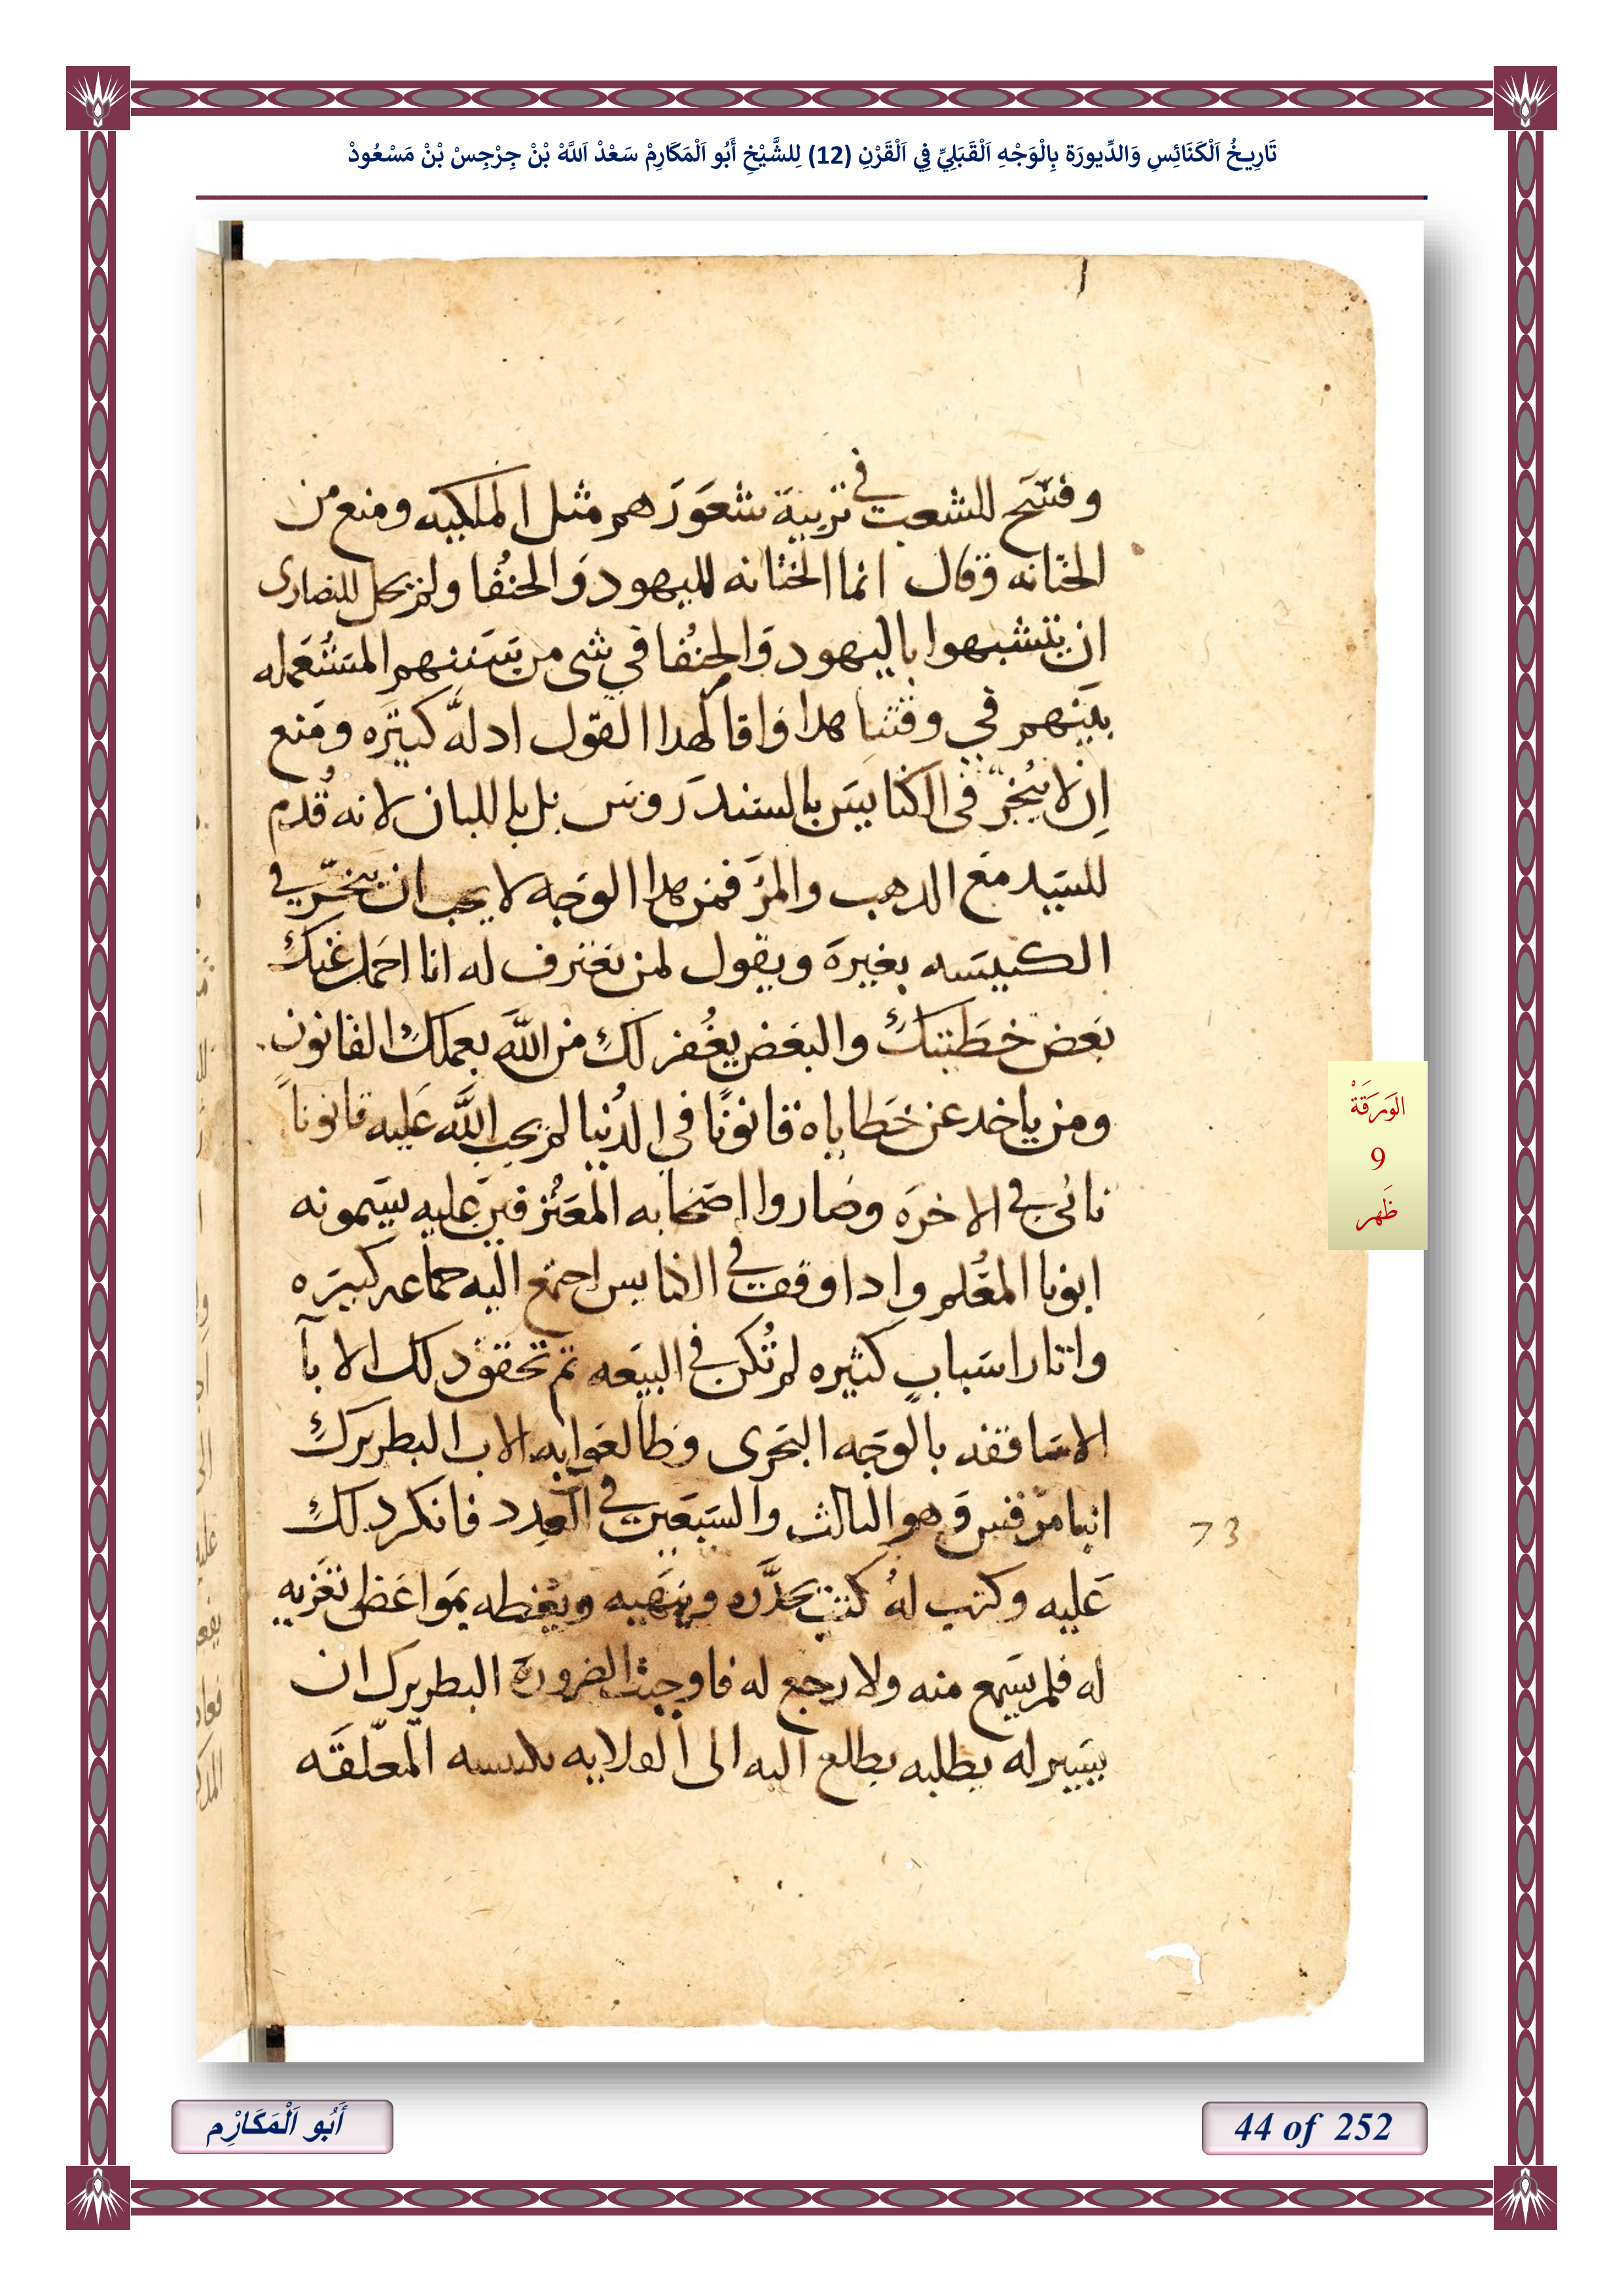 تَارِيخُ اَلْكَنَائِسِ وَالدِّيورَة بِالْوَجْهِ اَلْقَبَلِيِّ فِي اَلْقَرْنِ (12) لِلشَّيْخِ أَبُو اَلْمَكَارِمْ سَعْدْ اَللَّهْ بْنْ جِرْجِسْ بْنْ مَسْعُودْ
وفسّح للشعب في تربية شعورهم مثل الملكيه ومنع من
الختانه وقال انما الختانه لليهود والحنفا ولم يحل للنصارى
ان يتشبهوا باليهود والحنفا في شى من سننهم المستعمله
بينهم في وقتنا هدا واقام لهدا القول ادله كتيره ومنع
ان لا يبخّر في الكنايس بالسندروس بل باللبان لانه قُدم
للسيد مع الدهب والمرّ فمن هدا الوجه لا يجب ان يبخّر في
الكنيسه بغيره ويقول لمن يعترف له انا احمل عنك
بعض خطيتك والبعض يغُفر لك من الله بعملك القانون
ومن ياخد عن خطاياه قانونًا في الدُنيا لم يجب الله عليه قانوناً
تانى في الاخره وصاروا اصحابه المعترفين عليه يسمونه
ابونا المعلم وادا وقف في الكنايس اجتمع اليه جماعه كبيره
واتار اسباب كثيره لم تُكن في البيعه تم تحقق دلك الابآ
الاساقفه بالوجه البحرى وطالعوا به الاب البطريرك
انبا مرقس وهو التالث والسبعين في العدد فانكر دلك
73
عليه وكتب لهُ كتب يحدّره وينهيه ويعظه بمواعظ تعزيه
له فلم يسمع منه ولا رجع له فاوجبت الضروره البطريرك ان
يسير له يطلبه يطلع اليه الى القلايه بكنيسه المعلّقه
الوَرَقَةْ
9
ظَهر
أَبُو اَلْمَكَارْمِ
44 of 252